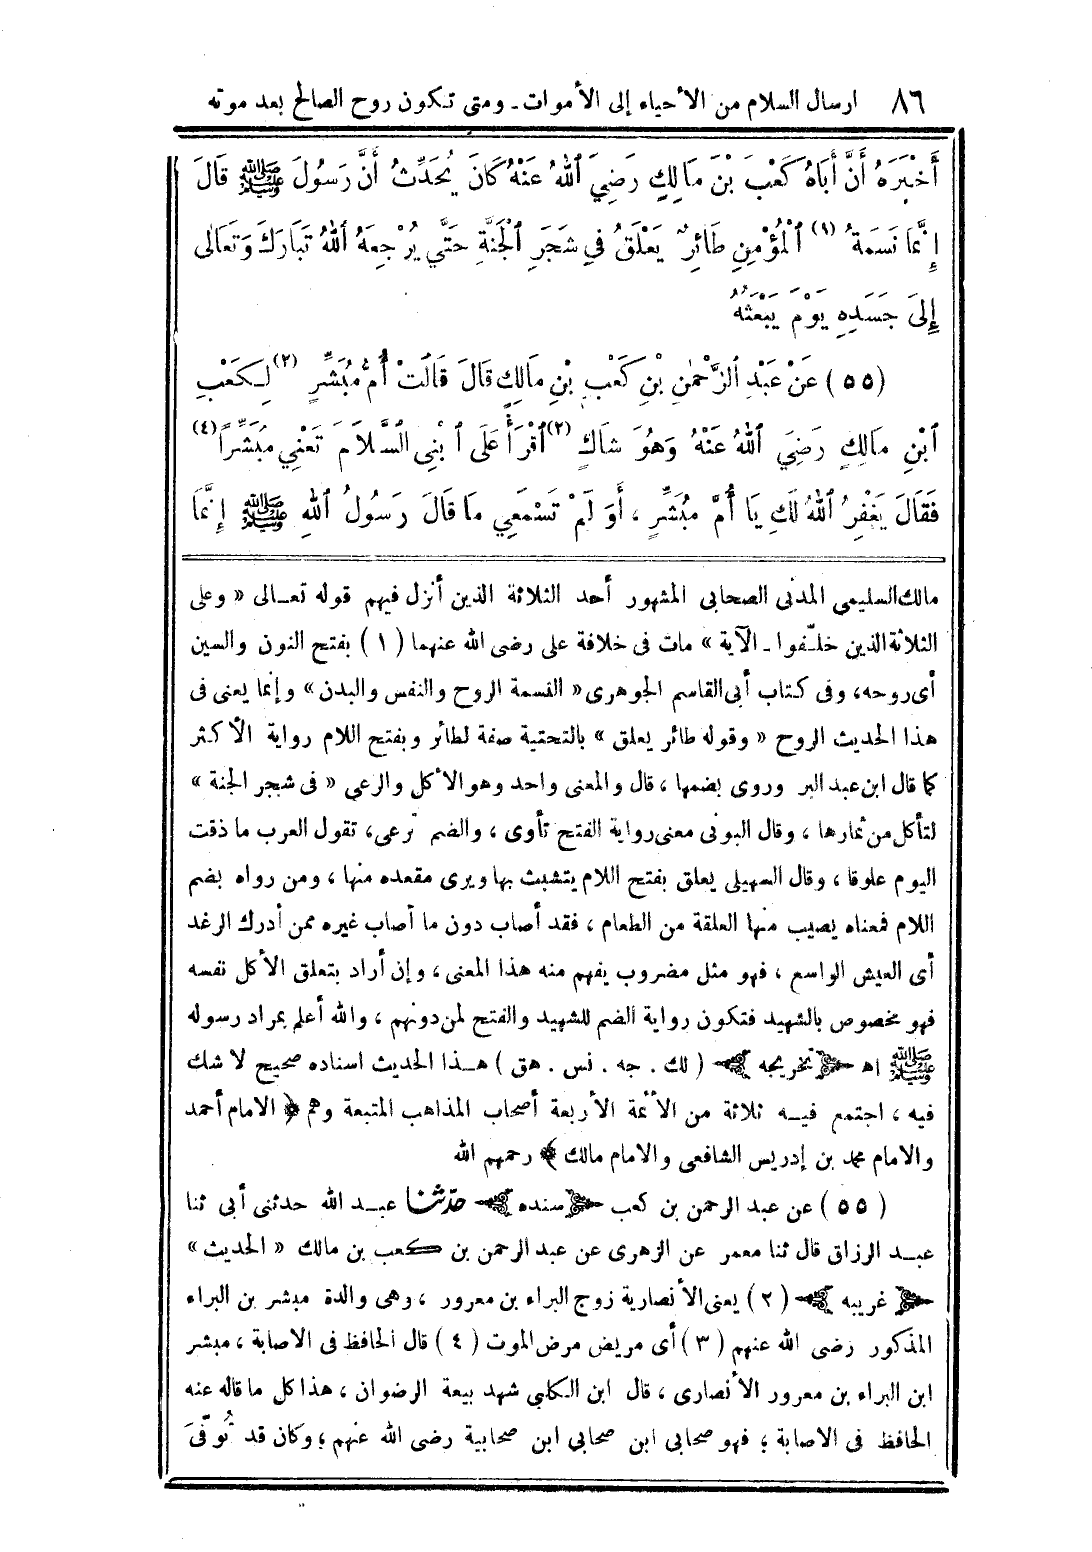 ٨٦ ارسال السلام من الأحياء إلى الأموات ـ ومتى تكون روح الصالح بعد موته
أَخْبَرَهُ أَنَّ أَبَاهُ كَعْبَ بْنَ مَالِكٍ رَضِيَ ٱللهُ عَنْهُ كَانَ يُحَدِّثُ أَنَّ رَسُولَ ﷺ قَالَ
إِنَّمَا نَسَمَةُ (١) ٱلْمُؤْمِنِ طَائِرٌ يَعْلَقُ فِي شَجَرِ ٱلْجَنَّةِ حَتَّى يُرْجِعَهُ ٱللهُ تَبَارَكَ وَتَعَالَى
إِلَى جَسَدِهِ يَوْمَ يَبْعَثُهُ
(٥٥) عَنْ عَبْدِ ٱلرَّحْمٰنِ بْنِ كَعْبِ بْنِ مَالِكٍ قَالَ قَالَتْ أُمُّ مُبَشِّرٍ (٢) لِكَعْبِ
ٱبْنِ مَالِكٍ رَضِيَ ٱللهُ عَنْهُ وَهُوَ شَاكٍ (٢) ٱقْرَأْ عَلَى ٱبْنِي السَّلَامَ تَعْنِي مُبَشِّرًا (٤)
فَقَالَ يَغْفِرُ ٱللهُ لَكِ يَا أُمَّ مُبَشِّرٍ ، أَوَ لَمْ تَسْمَعِي مَا قَالَ رَسُولُ ٱللهِ ﷺ إِنَّمَا
مالك السليمي المدنى الصحابى المشهور أحد الثلاثة الذين أنزل فيهم قوله تعالى « وعلى
الثلاثة الذين خلّفوا ـ الآية » مات فى خلافة على رضى الله عنهما (١) بفتح النون والسين
أى روحه، وفى كتاب أبى القاسم الجوهرى « النسمة الروح والنفس والبدن » وإنما يعنى فى
هذا الحديث الروح « وقوله طائر يعلق » بالتحتية صفة لطائر وبفتح اللام رواية الأكثر
كما قال ابن عبد البر وروى بضمها ، قال والمعنى واحد وهو الأكل والرعي « فى شجر الجنة »
لتأكل من ثمارها ، وقال البونى معنى رواية الفتح تأوى ، والضم ترعى، تقول العرب ما ذقت
اليوم علوقا ، وقال السهيلى يعلق بفتح اللام يتشبث بها ويرى مقعده منها ، ومن رواه بضم
اللام فمعناه يصيب منها العلقة من الطعام ، فقد أصاب دون ما أصاب غيره ممن أدرك الرغد
أى العيش الواسع ، فهو مثل مضروب يفهم منه هذا المعنى ، وإن أراد بتعلق الأكل نفسه
فهو مخصوص بالشهيد فتكون رواية الضم للشهيد والفتح لمن دونهم ، والله أعلم بمراد رسوله
ﷺ اه تخريجه ( لك . جه . نس . هق ) هذا الحديث اسناده صحيح لا شك
فيه ، اجتمع فيه ثلاثة من الأئمة الأربعة أصحاب المذاهب المتبعة وهم ﴿ الامام أحمد
والامام محمد بن إدريس الشافعى والامام مالك ﴾ رحمهم الله
(٥٥) عن عبد الرحمن بن كعب سنده حدّثنا عبد الله حدثنى أبى ثنا
عبد الرزاق قال ثنا معمر عن الزهرى عن عبد الرحمن بن كعب بن مالك « الحديث »
غريبه (٢) يعنى الأنصارية زوج البراء بن معرور ، وهى والدة مبشر بن البراء
المذكور رضى الله عنهم (٣) أى مريض مرض الموت (٤) قال الحافظ فى الاصابة ، مبشر
ابن البراء بن معرور الأنصارى ، قال ابن الكلبى شهد بيعة الرضوان ، هذا كل ما قاله عنه
الحافظ فى الاصابة ؛ فهو صحابى ابن صحابى ابن صحابية رضى الله عنهم ؛ وكان قد تُوفّىَ